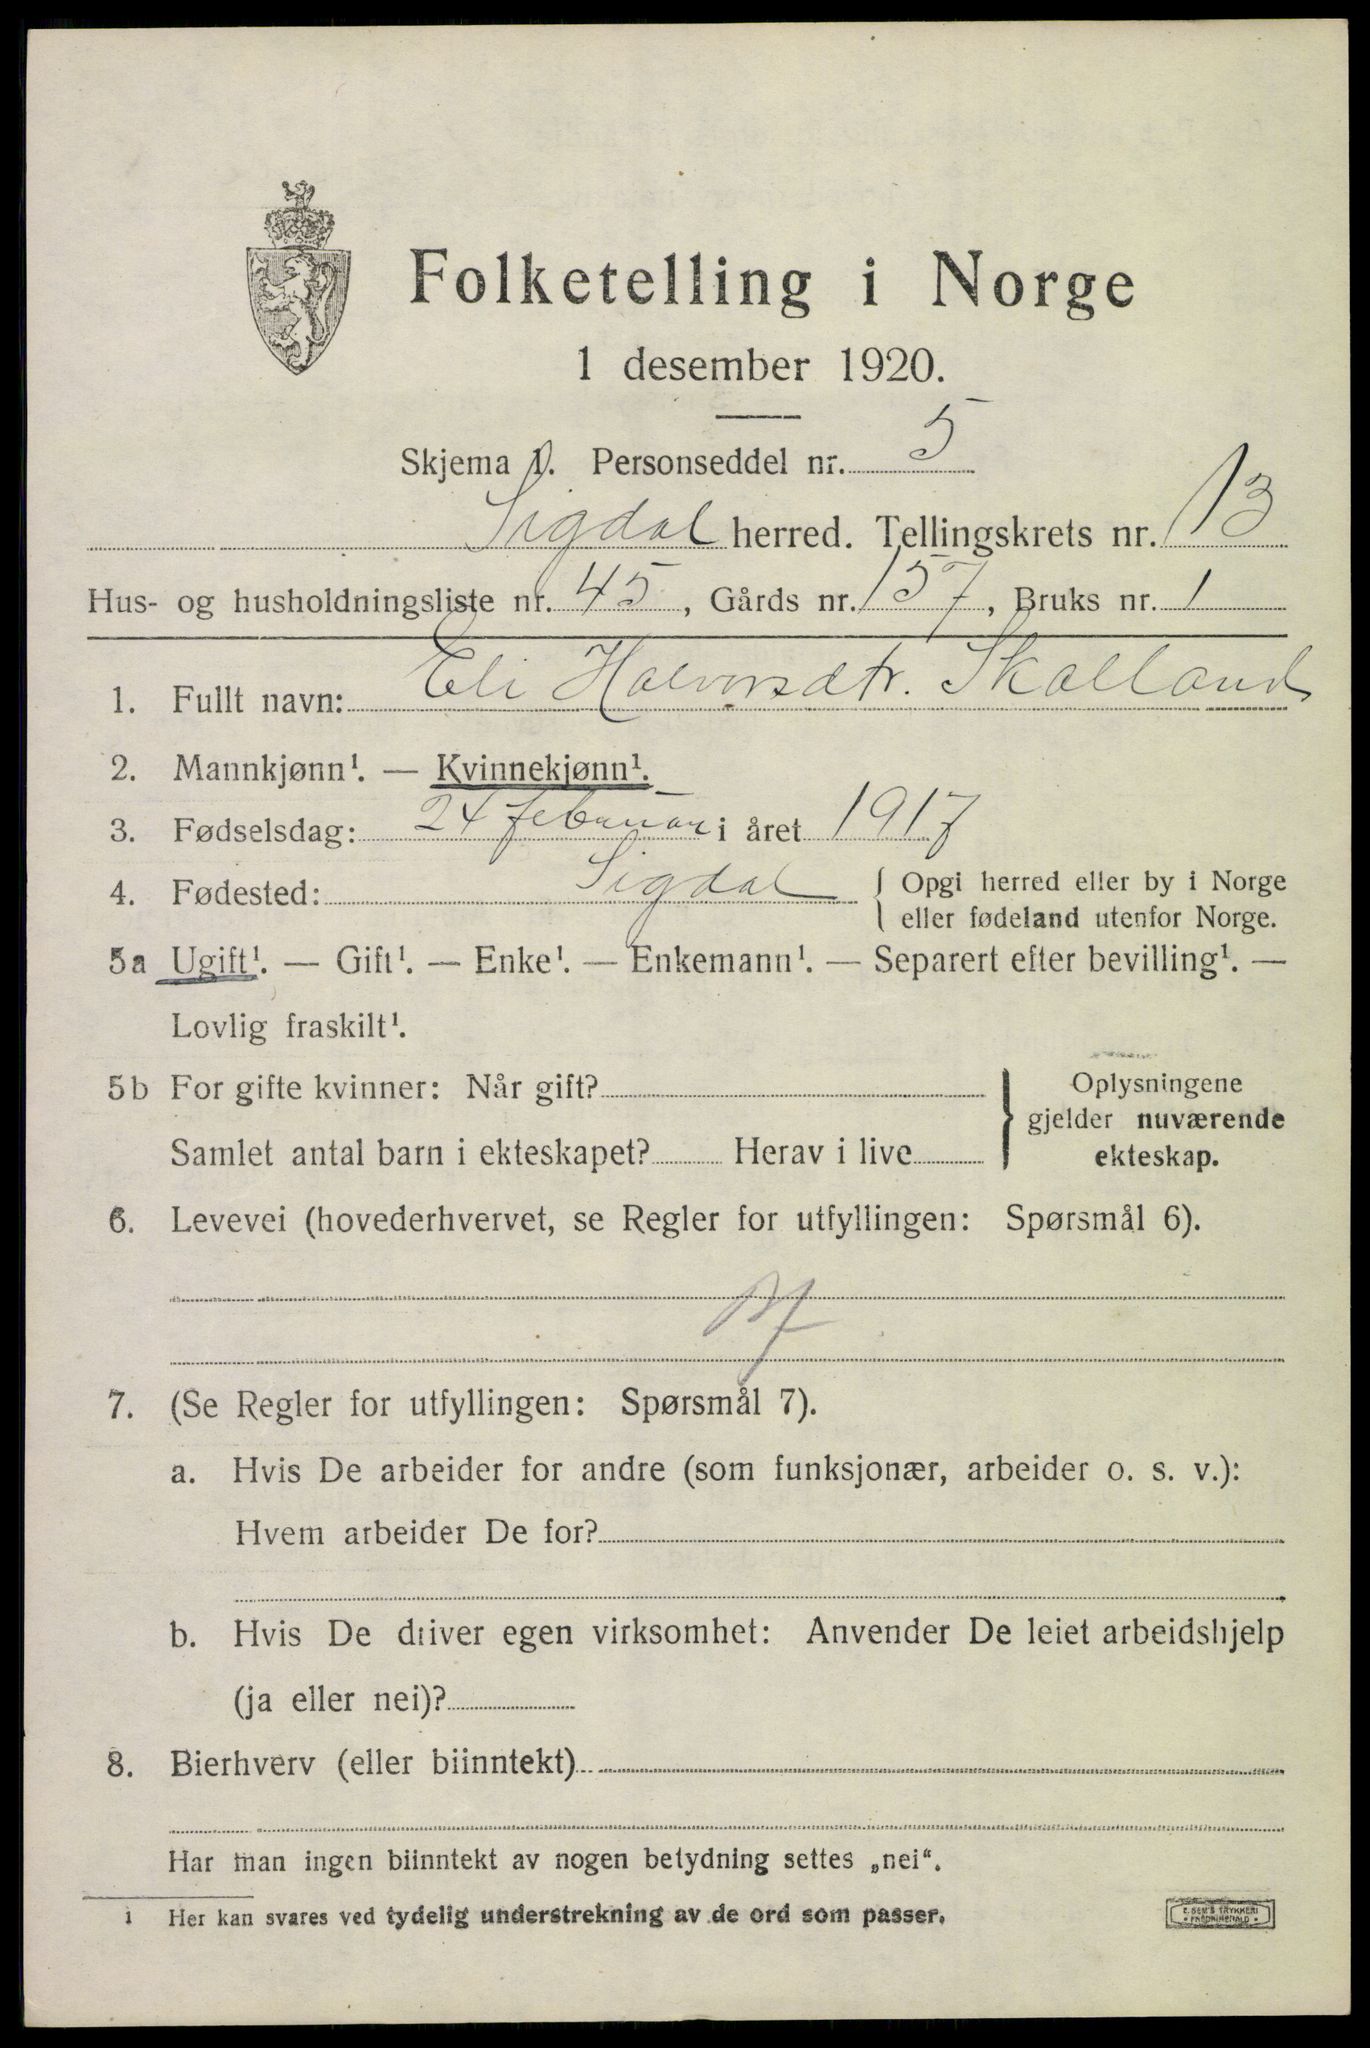 Folketelling i Norge
1 desember 1920.
Skjema 1. Personseddel nr. 5
Sigdal herred. Tellingskrets nr. 13
Hus- og husholdningsliste nr. 45, Gårds nr. 157, Bruks nr. 1
1. Fullt navn: Eli Halvorsdtr. Skalland
2. Mannkjønn¹. — Kvinnekjønn¹.
3. Fødselsdag: 24 februar i året 1917
4. Fødested: Sigdal { Opgi herred eller by i Norge
eller fødeland utenfor Norge.
5a Ugift¹. — Gift¹. — Enke¹. — Enkemann¹. — Separert efter bevilling¹. —
Lovlig fraskilt¹.
5b For gifte kvinner: Når gift? } Oplysningene
gjelder nuværende
Samlet antal barn i ekteskapet? Herav i live ekteskap.
6. Levevei (hovederhvervet, se Regler for utfyllingen: Spørsmål 6).
7. (Se Regler for utfyllingen: Spørsmål 7).
a. Hvis De arbeider for andre (som funksjonær, arbeider o. s. v.):
Hvem arbeider De for?
b. Hvis De driver egen virksomhet: Anvender De leiet arbeidshjelp
(ja eller nei)?
8. Bierhverv (eller biinntekt)
Har man ingen biinntekt av nogen betydning settes „nei“.
1 Her kan svares ved tydelig understrekning av de ord som passer.
E. SEM'S TRYKKERI
• FREDRIKSHALD •